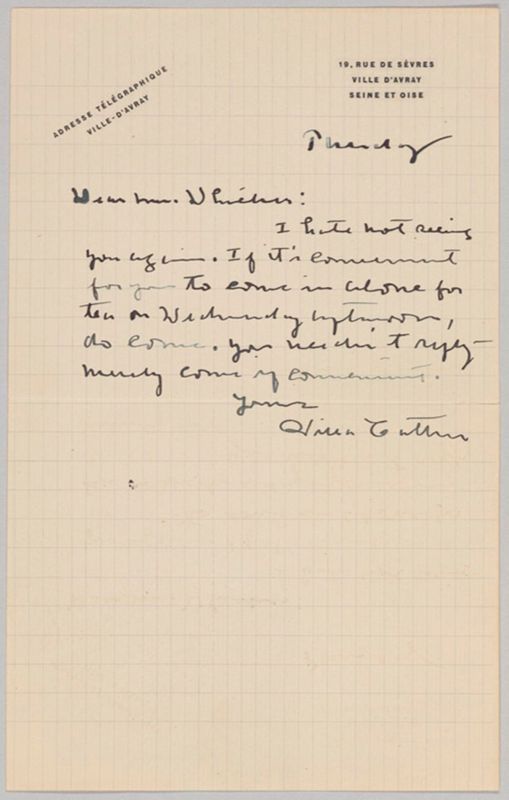 ADRESSE TÉLÉGRAPHIQUE
VILLE-D'AVRAY
19, RUE DE SÈVRES
VILLE D'AVRAY
SEINE ET OISE
Dear Whicher:
I hate not seeing
you again. If it's convenient
for you to come in alone for
tea on Wednesday afternoon,
do come. You needn't reply -
merely come if convenient.
Yours
Willa Cather